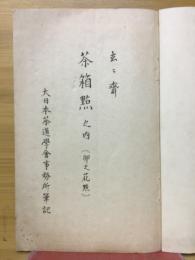 玄々斎
茶箱點之内(卯之花點)
大日本茶道學會事務所筆記